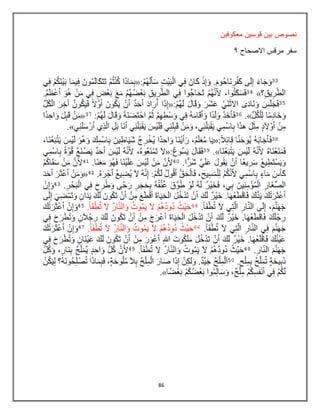 نصوص بين قوسين معكوفين
سفر مرقس الاصحاح ٩
33وَجَاءَ إِلَى كَفْرِنَاحُومَ. وَإِذْ كَانَ فِي الْبَيْتِ سَأَلَهُمْ:«بِمَاذَا كُنْتُمْ تَتَكَالَمُونَ فِيمَا بَيْنَكُمْ فِي
الطَّرِيقِ؟» 34فَسَكَتُوا، لأَنَّهُمْ تَحَاجُّوا فِي الطَّرِيقِ بَعْضُهُمْ مَعَ بَعْضٍ فِي مَنْ هُوَ أَعْظَمُ.
35فَجَلَسَ وَنَادَى الاثْنَيْ عَشَرَ وَقَالَ لَهُمْ:«إِذَا أَرَادَ أَحَدٌ أَنْ يَكُونَ أَوَّلاً فَيَكُونُ آخِرَ الْكُلِّ
وَخَادِمًا لِلْكُلِّ». 36فَأَخَذَ وَلَدًا وَأَقَامَهُ فِي وَسْطِهِمْ ثُمَّ احْتَضَنَهُ وَقَالَ لَهُمْ: 37«مَنْ قَبِلَ وَاحِدًا
مِنْ أَوْلاَدٍ مِثْلِ هذَا بِاسْمِي يَقْبَلُنِي، وَمَنْ قَبِلَنِي فَلَيْسَ يَقْبَلُنِي أَنَا بَلِ الَّذِي أَرْسَلَنِي».
38فَأَجَابَهُ يُوحَنَّا قِائِلاً:«يَا مُعَلِّمُ، رَأَيْنَا وَاحِدًا يُخْرِجُ شَيَاطِينَ بِاسْمِكَ وَهُوَ لَيْسَ يَتْبَعُنَا،
فَمَنَعْنَاهُ لأَنَّهُ لَيْسَ يَتْبَعُنَا». 39فَقَالَ يَسُوعُ:«لاَ تَمْنَعُوهُ، لأَنَّهُ لَيْسَ أَحَدٌ يَصْنَعُ قُوَّةً بِاسْمِي
وَيَسْتَطِيعُ سَرِيعًا أَنْ يَقُولَ عَلَيَّ شَرًّا. 40لأَنَّ مَنْ لَيْسَ عَلَيْنَا فَهُوَ مَعَنَا. 41لأَنَّ مَنْ سَقَاكُمْ
كَأْسَ مَاءٍ بِاسْمِي لأَنَّكُمْ لِلْمَسِيحِ، فَالْحَقَّ أَقُولُ لَكُمْ: إِنَّهُ لاَ يُضِيعُ أَجْرَهُ. 42وَمَنْ أَعْثَرَ أَحَدَ
الصِّغَارِ الْمُؤْمِنِينَ بِي، فَخَيْرٌ لَهُ لَوْ طُوِّقَ عُنُقُهُ بِحَجَرِ رَحًى وَطُرِحَ فِي الْبَحْرِ. 43وَإِنْ
أَعْثَرَتْكَ يَدُكَ فَاقْطَعْهَا. خَيْرٌ لَكَ أَنْ تَدْخُلَ الْحَيَاةَ أَقْطَعَ مِنْ أَنْ تَكُونَ لَكَ يَدَانِ وَتَمْضِيَ إِلَى
جَهَنَّمَ، إِلَى النَّارِ الَّتِي لاَ تُطْفَأُ. 44حَيْثُ دُودُهُمْ لاَ يَمُوتُ وَالنَّارُ لاَ تُطْفَأُ. 45وَإِنْ أَعْثَرَتْكَ
رِجْلُكَ فَاقْطَعْهَا. خَيْرٌ لَكَ أَنْ تَدْخُلَ الْحَيَاةَ أَعْرَجَ مِنْ أَنْ تَكُونَ لَكَ رِجْلاَنِ وَتُطْرَحَ فِي
جَهَنَّمَ فِي النَّارِ الَّتِي لاَ تُطْفَأُ. 46حَيْثُ دُودُهُمْ لاَ يَمُوتُ وَالنَّارُ لاَ تُطْفَأُ. 47وَإِنْ أَعْثَرَتْكَ
عَيْنُكَ فَاقْلَعْهَا. خَيْرٌ لَكَ أَنْ تَدْخُلَ مَلَكُوتَ اللهِ أَعْوَرَ مِنْ أَنْ تَكُونَ لَكَ عَيْنَانِ وَتُطْرَحَ فِي
جَهَنَّمِ النَّارِ. 48حَيْثُ دُودُهُمْ لاَ يَمُوتُ وَالنَّارُ لاَ تُطْفَأُ. 49لأَنَّ كُلَّ وَاحِدٍ يُمَلَّحُ بِنَارٍ، وَكُلَّ
ذَبِيحَةٍ تُمَلَّحُ بِمِلْحٍ. 50اَلْمِلْحُ جَيِّدٌ. وَلكِنْ إِذَا صَارَ الْمِلْحُ بِلاَ مُلُوحَةٍ، فَبِمَاذَا تُصْلِحُونَهُ؟ لِيَكُنْ
لَكُمْ فِي أَنْفُسِكُمْ مِلْحٌ، وَسَالِمُوا بَعْضُكُمْ بَعْضًا».
86